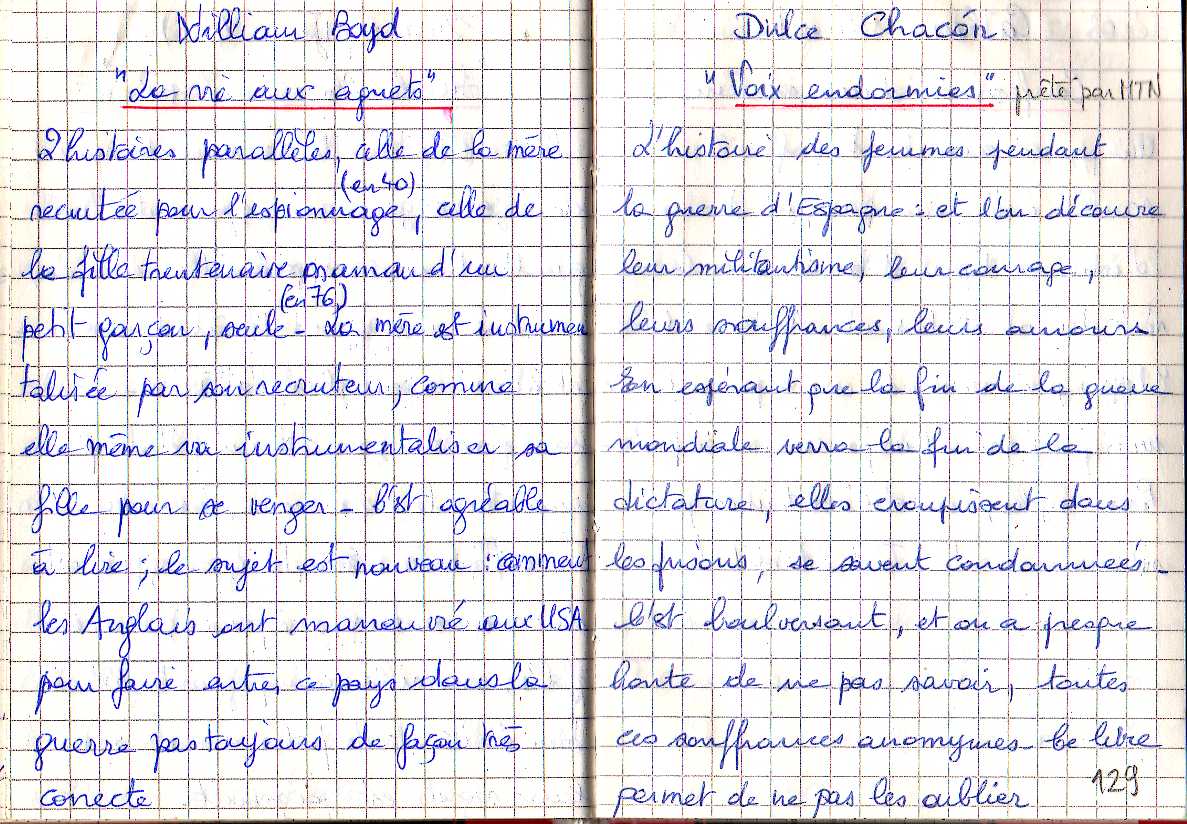 William Boyd
"La vie aux aguets"
2 histoires parallèles, celle de la mère
(en 40)
recrutée pour l'espionnage, celle de
la fille trentenaire maman d'un
(en 76)
petit garçon, seule - La mère est instrumen
talisée par son recruteur, comme
elle même va instrumentaliser sa
fille pour se venger - C'est agréable
à lire ; le sujet est nouveau : comment
les Anglais ont manœuvré aux USA
pour faire entrer ce pays dans la
guerre pas toujours de façon très
correcte
Dulce Chacón
"Voix endormies" prêté par MTN
L'histoire des femmes pendant
la guerre d'Espagne : et l'on découvre
leur militantisme, leur courage,
leurs souffrances, leurs amours
En espérant que la fin de la guerre
mondiale verra la fin de la
dictature, elles croupissent dans
les prisons, se savent condamnées -
C'est bouleversant, et on a presque
honte de ne pas savoir, toutes
ces souffrances anonymes - Ce livre
permet de ne pas les oublier
129